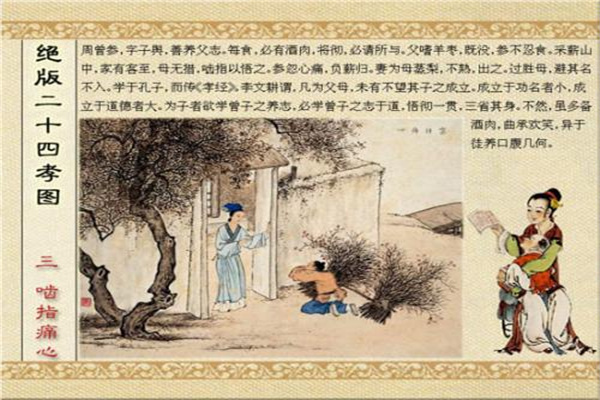 绝版二十四孝图
三 啮指痛心
周曾参,字子舆,善养父志。每食,必有酒肉,将彻,必请所与。父嗜羊枣,既没,参不忍食。采薪山
中,家有客至,母无措,啮指以悟之。参忽心痛,负薪归。妻为母蒸梨,不熟,出之。过胜母,避其名
不入。学于孔子,而传《孝经》。李文耕谓,凡为父母,未有不望其子之成立。成立于功名者小,成
立于道德者大。为子者欲学曾子之养志,必学曾子之志于道,悟彻一贯,三省其身。不然,虽多备
酒肉,曲承欢笑,异于
徒养口腹几何。